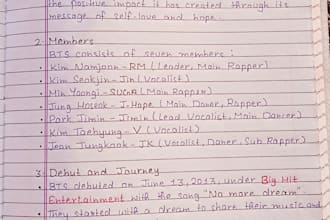 the positive impact it has created through its
message of self-love and hope.
2. Members
BTS consists of seven members :
• Kim Namjoon - RM (Leader, Main Rapper)
• Kim Seokjin - Jin (Vocalist)
• Min Yoongi - SUGA (Main Rapper)
• Jung Hoseok - J-Hope (Main Dancer, Rapper)
• Park Jimin - Jimin (Lead Vocalist, Main Dancer)
• Kim Taehyung - V (Vocalist)
• Jeon Jungkook - JK (Vocalist, Dancer, Sub Rapper)
3. Debut and Journey
• BTS debuted on June 13, 2013, under Big Hit
Entertainment with the song "No more dream".
• They started with a dream to share their music and